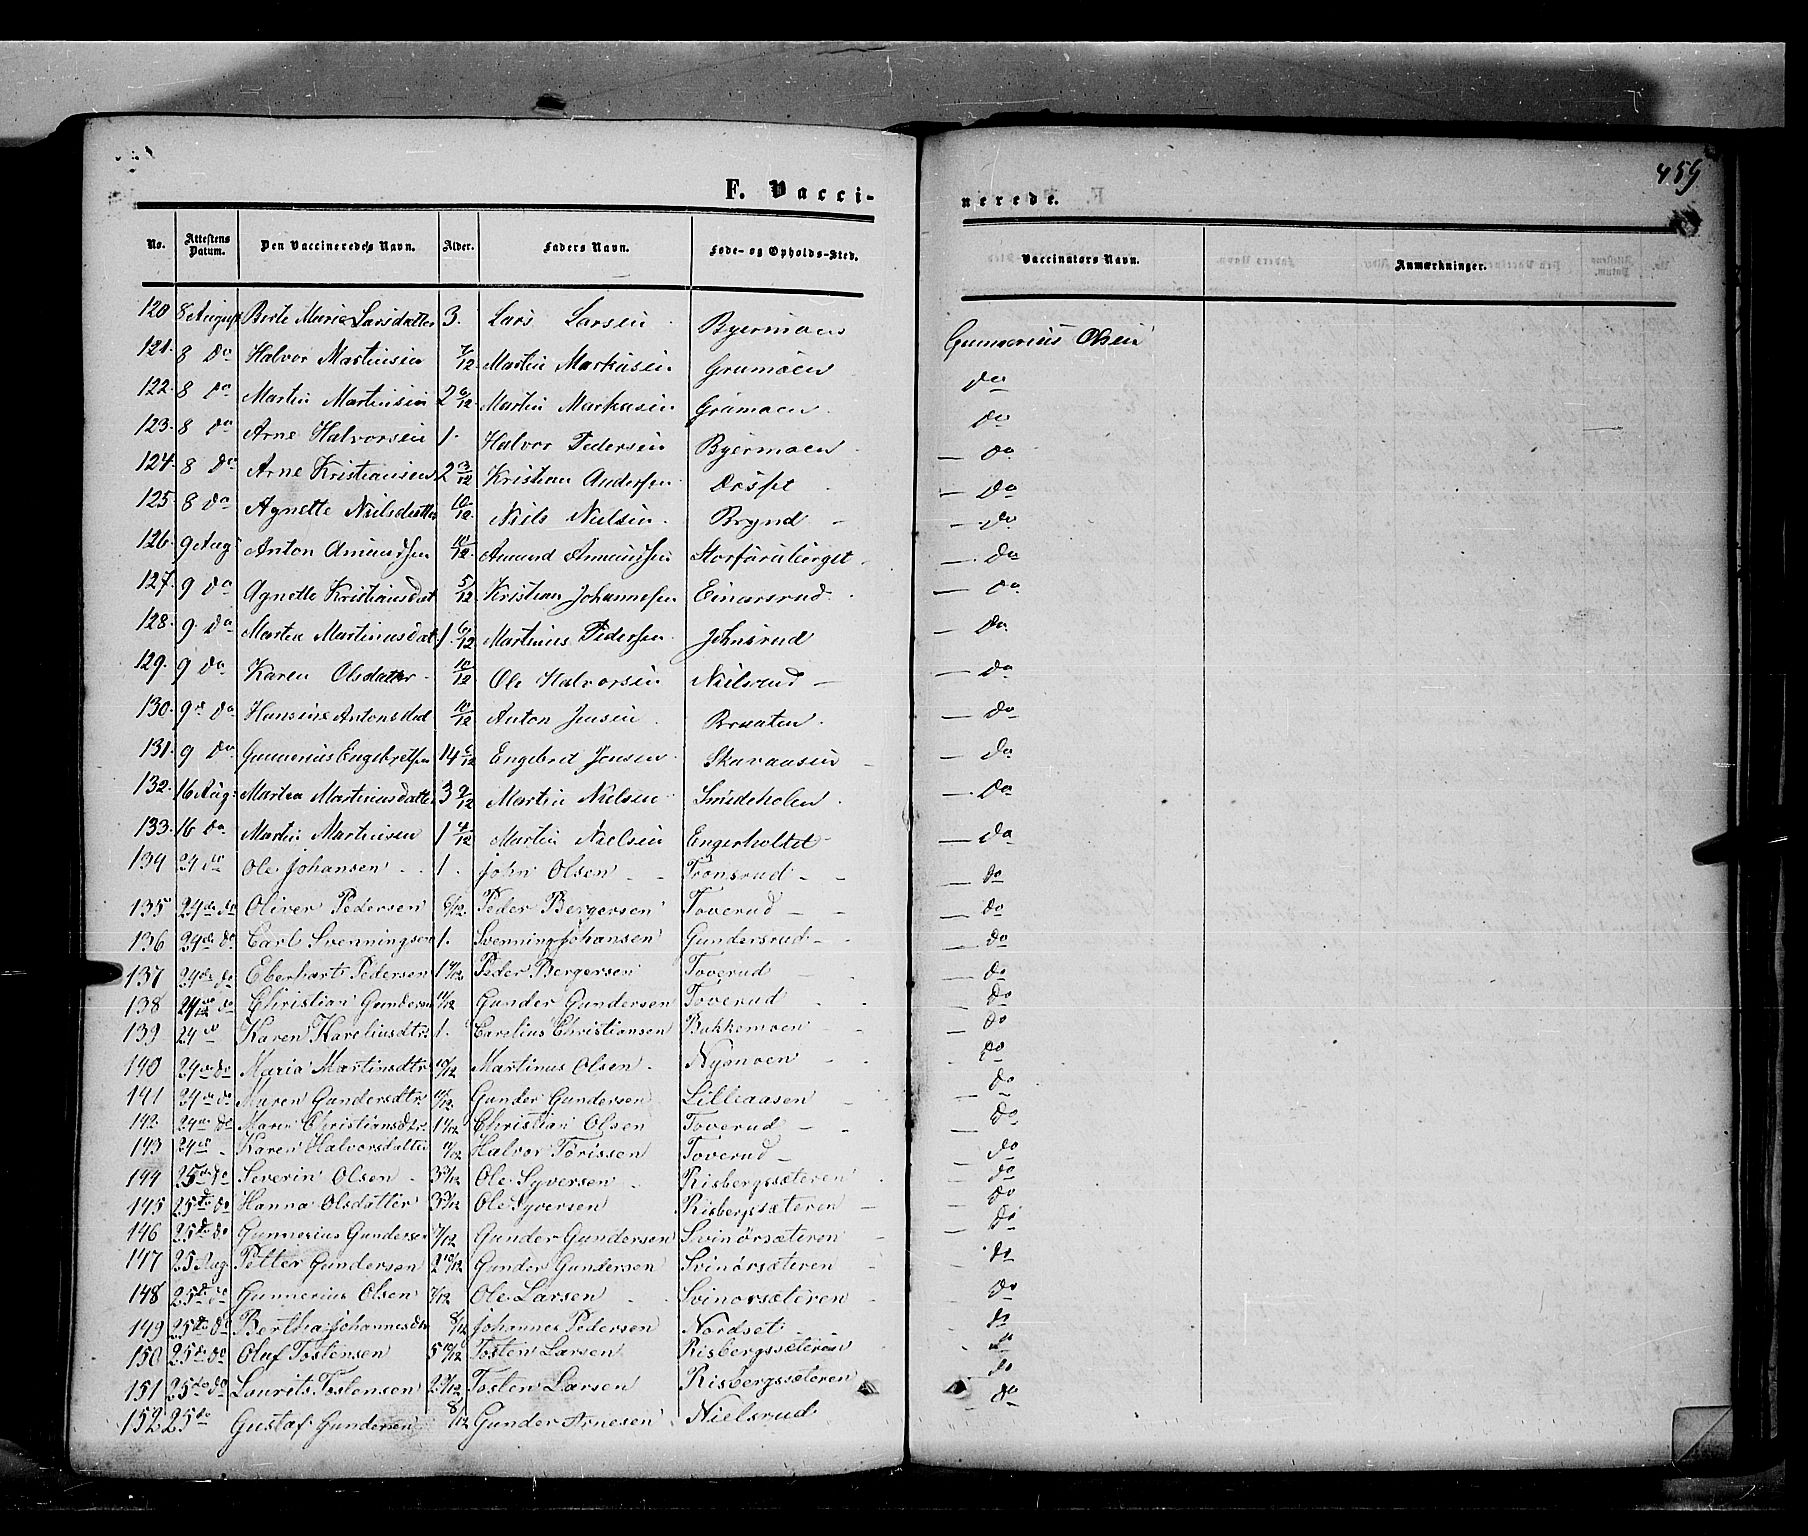 459
F. Vacci-
nerede.
No. Attestens Datum. Den Vaccineredes Navn. Alder. Faders Navn. Føde- og Opholds-Sted. Vaccinators Navn. Anmærkninger.
120 8 August Berte Marie Larsdatter 3. Lars Larsen Byermoen Gunnerius Olsen
121. 8 do Halvor Martinsen 7/12 Martin Markusen Gramoen do
122. 8 do Martin Martinsen 2 6/12 Martin Markusen Gramoen do
123. 8 do Arne Halvorsen 1. Halvor Pedersen Byermoen do
124. 8 do Arne Kristiansen 2 3/12 Kristian Andersen Dosset do
125. 8 do Agnette Nielsdatter 10/12 Niels Nielsen Brynd do
126. 9 Aug Anton Amundsen 10/12 Amund Amundsen Storfaraberget do
127. 9 do Agnette Kristiansdat 5/12 Kristian Johannesen Einarsrud do
128. 9 do Martea Martinusdat. 1 6/12 Martinus Pedersen Johnsrud do
129. 9 do Karen Olsdatter 10/12 Ole Halvorsen Nielsrud do
130. 9 do Hansine Antonsdat 10/12 Anton Jensen Braaten do
131. 9 do Gunnerius Engebretsen 14 6/12 Engebret Jensen Skavaasen do
132. 16 Aug: Martea Martinusdatter 3 9/12 Martin Nielsen Smideholen do
133. 16 do Martin Martinsen 1 4/12 Martin Nielsen Engerholtet do
134 24 do Ole Johansen 1. John Olsen Tronsrud do
135 24 do do Oliver Pedersen 6/12 Peder Bergersen Toverud do
136 24 do do Carl Svenningsen 1. Svenning Johansen Gundersrud do
137 24 do do Eberhart Pedersen 1 4/12 Peder Bergersen Toverud do
138 24 do Christian Gundersen 11/12 Gunder Gundersen Toverud do
139 24 do Karen Kareliusdtr 1. Carelius Christiansen Bakkemoen do
140 24 do do Maria Martinsdtr 10/12 Martinus Olsen Nysmoen do
141 24 do do Maren Gundersdtr 11/12 Gunder Gundersen Lilleaasen do
142 24 do do Maren Christiansdtr. 1 4/12 Christian Olsen Toverud do
143 24 do Karen Halvorsdatter 11/12 Halvor Torissen Toverud do
144 25 do do Severin Olsen 3 3/12 Ole Syversen Risbergssæteren do
145 25 do do Hanna Olsdatter 3 3/12 Ole Syversen Risbergssæteren do
146 25 do do Gunnerius Gundersen 7/12 Gunder Gundersen Svinørsæteren do
147 25 Aug Petter Gundersen 2 10/12 Gunder Gundersen Svinørsæteren do
148 25 do do Gunnerius Olsen 7/12 Ole Larsen Svinorsæteren do
149 25 do do Bertha Johannesdtr 8/12 Johannes Pedersen Nordset do
150 25 do do Oluf Tostensen 5 10/12 Tosten Larsen Risbergssæteren do
151 25 do do Laurits Tostensen 2 7/12 Tosten Larsen Risbergssæteren do
152 25 do Gustaf Gundersen 8/12 Gunder Arnesen Nielsrud do